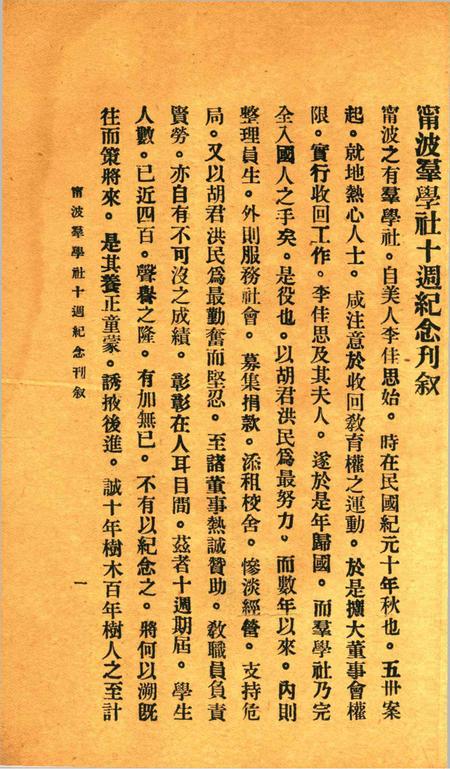 甯波羣學社十週紀念刊叙
甯波之有羣學社。自美人李佳思始。時在民國紀元十年秋也。五卅案
起。就地熱心人士。咸注意於收回敎育權之運動。於是擴大董事會權
限。實行收回工作。李佳思及其夫人。遂於是年歸國。而羣學社乃完
全入國人之手矣。是役也。以胡君洪民爲最努力。而數年以來。內則
整理員生。外則服務社會。募集捐款。添租校舍。慘淡經營。支持危
局。又以胡君洪民爲最勤奮而堅忍。至諸董事熱誠贊助。敎職員負責
賢勞。亦自有不可沒之成績。彰彰在人耳目間。茲者十週期屆。學生
人數。已近四百。聲譽之隆。有加無已。不有以紀念之。將何以溯旣
往而策將來。是其養正童蒙。誘掖後進。誠十年樹木百年樹人之至計
甯波羣學社十週紀念刊叙
一